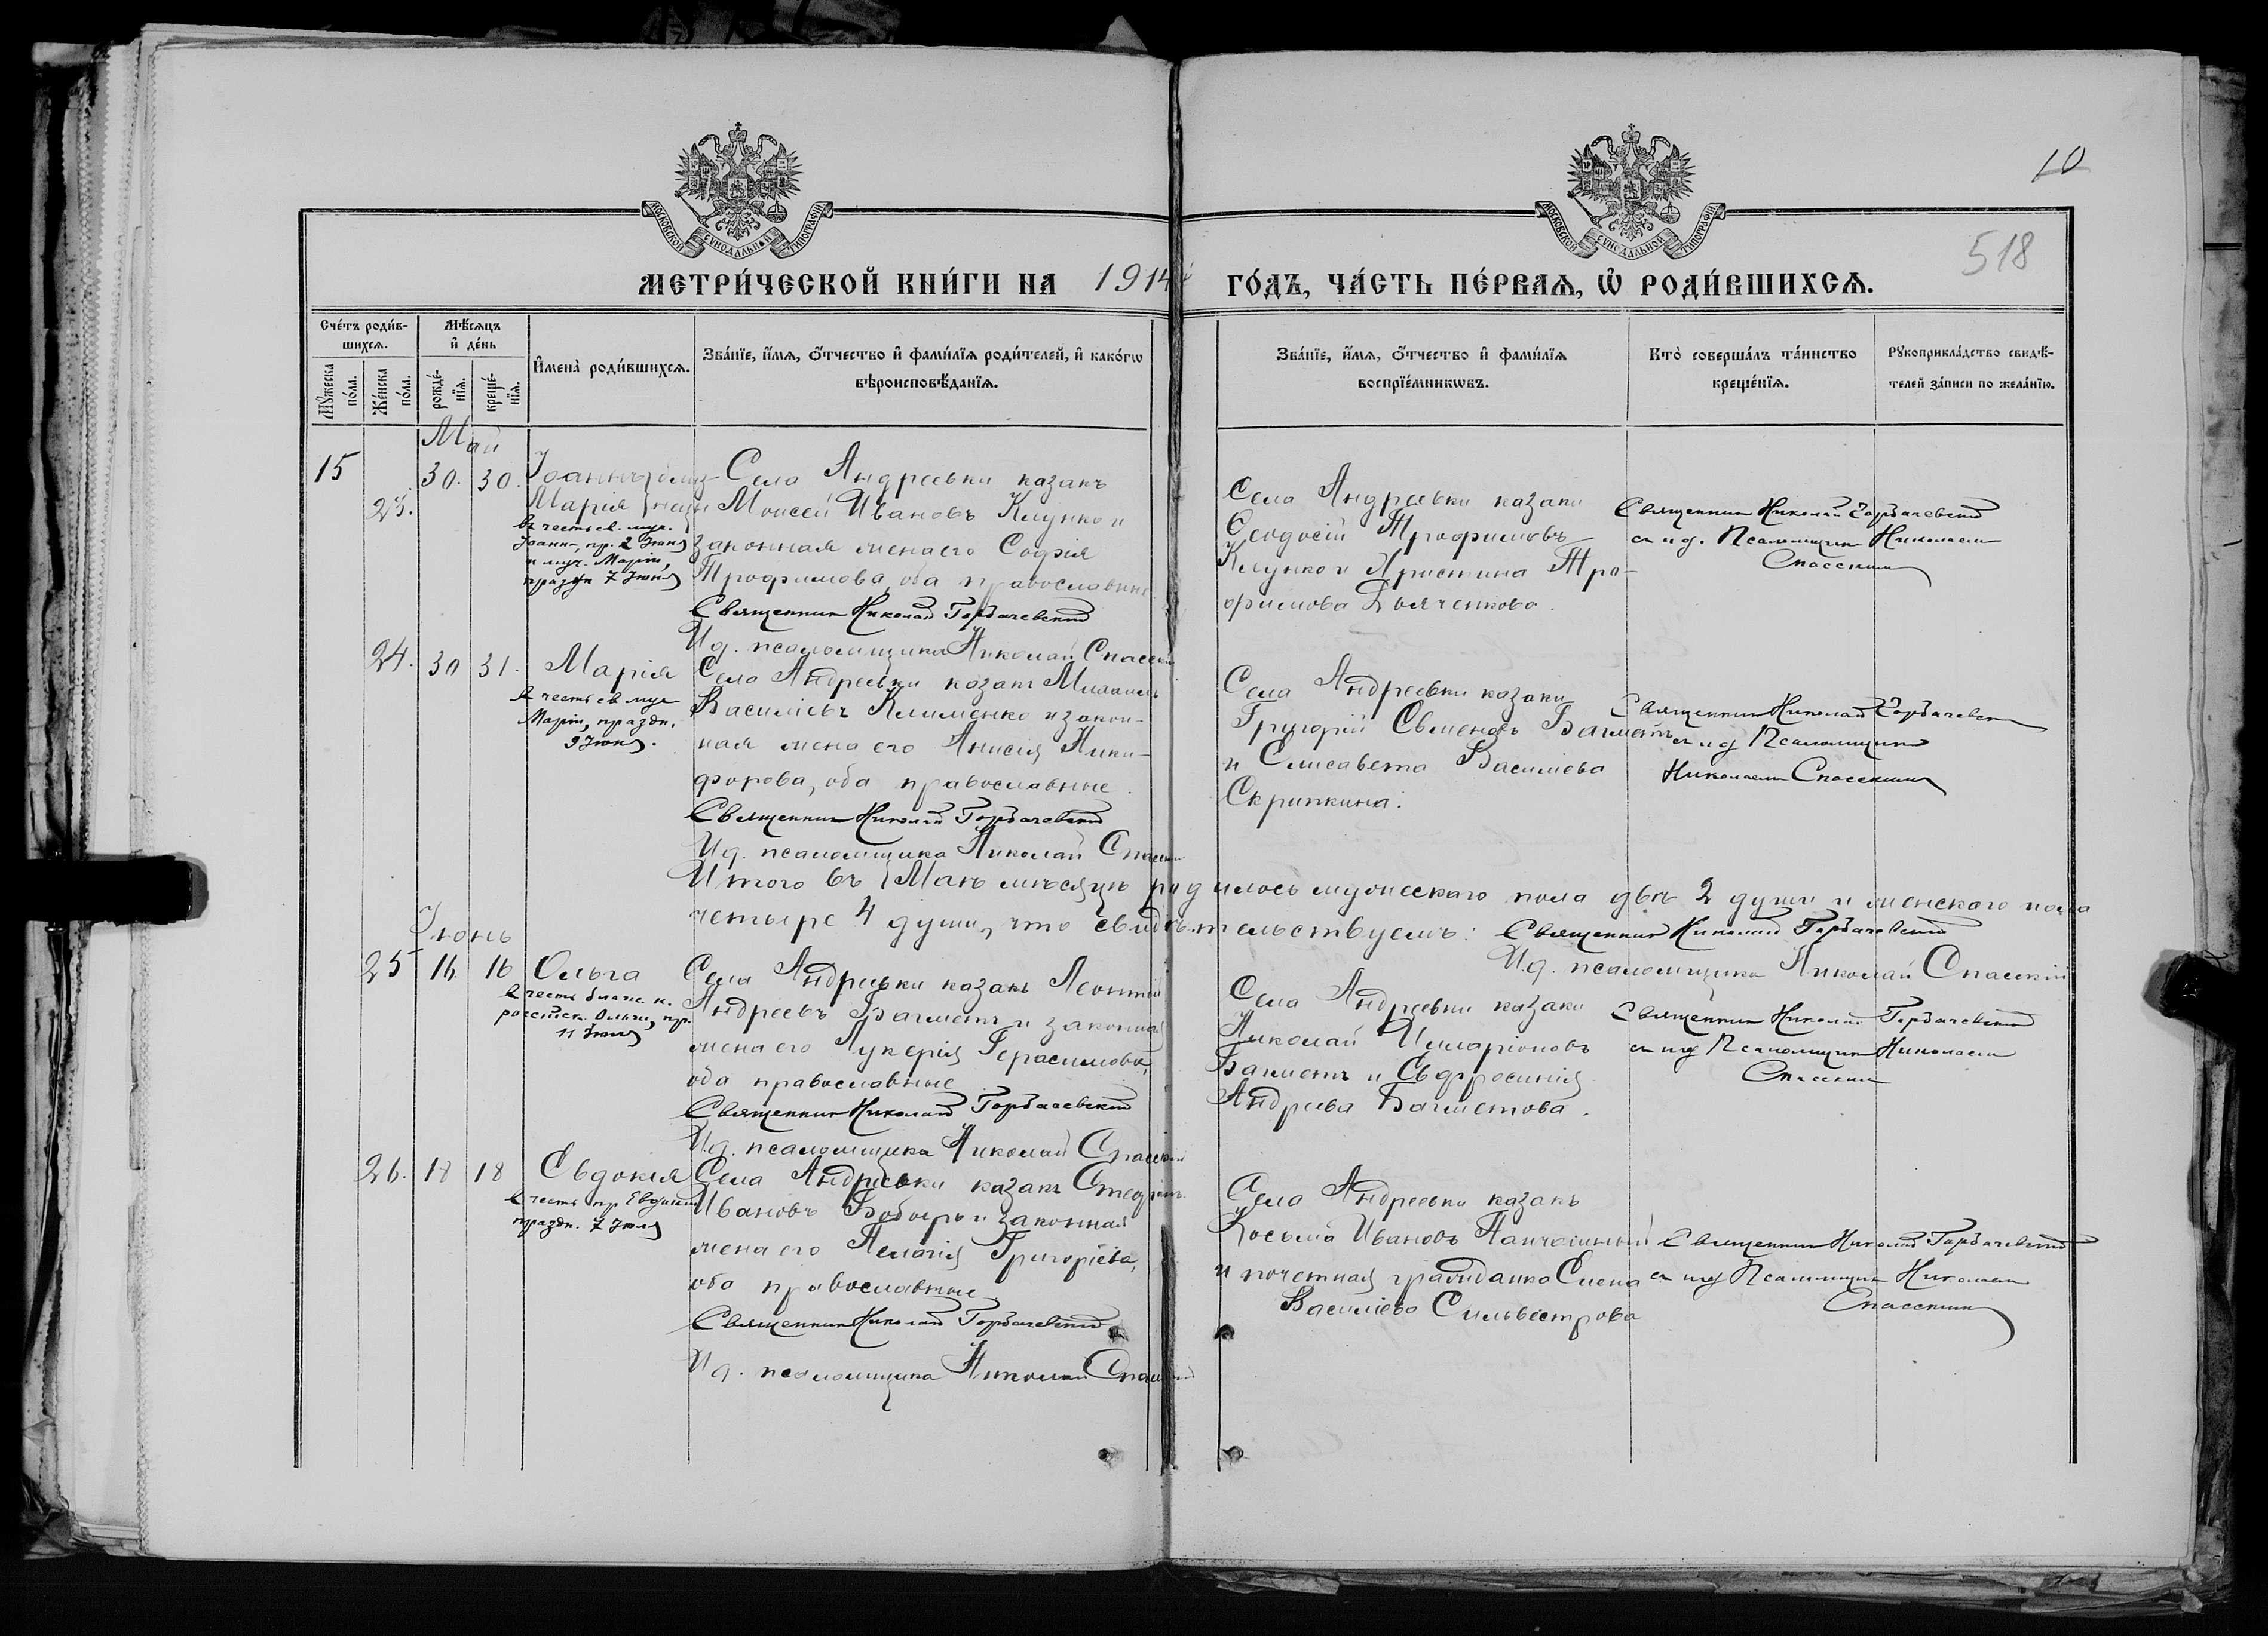 10
518
МОСКОВСКОЙ СѴНОДАЛЬНОЙ ТИПОГРАФІИ
МОСКОВСКОЙ СѴНОДАЛЬНОЙ ТИПОГРАФІИ
МЕТРИ́ЧЕСКОЙ КНИ́ГИ НА 1914 ГО́ДЪ, ЧА́СТЬ ПЕ́РВАѦ, Ѽ РОДИ́ВШИХСѦ.
Сче́тъ роди́в-
шихсѧ.
Мꙋ́жеска по́ла.
Же́нска по́ла.
Мѣ́сѧцъ
и҆ де́нь
рожде́-нїѧ.
креще́-нїѧ.
И҆мена̀ роди́вшихсѧ.
Зва́нїе, и҆́мѧ, ѻ҆́тчество и҆ фами́лїѧ роди́телей, и҆ како́гѡ
вѣроисповѣ́данїѧ.
Зва́нїе, и҆́мѧ, ѻ҆́тчество и҆ фами́лїѧ
воспрїе́мникѡвъ.
Кто̀ соверша́лъ та́инство
креще́нїѧ.
Рꙋкоприкла́дство свидѣ́-
телей за́писи по жела́нїю.
Май
15 30. 30. Іоаннъ близ-
23. Марія нецы
въ честь св. муч.
Іоанна, пр. 2 Іюня
и муч. Маріи,
праздн 7 Іюня
Села Андреевки казакъ
Моисей Ивановъ Клунко и
законная жена его Софія
Трофимова, оба православные
Священникъ Николай Горбачевскій
Ид. псаломщика Николай Спасскій
Села Андреевки казаки
Феодосій Трофимовъ
Клунко и Христина Тро-
фимова Дьяченкова.
Священникъ Николай Горбачевскій
съ и д. Псаломщика Николаемъ
Спасскимъ
24. 30 31. Марія
въ честь св муч
Маріи, праздн.
9 Іюня.
Села Андреевки казакъ Михаилъ
Василіевъ Клименко и закон-
ная жена его Анисія Ники-
форова, оба православные.
Священникъ Николай Горбачевскій
Ид. псаломщика Николай Спасскій
Села Андреевки казаки
Григорій Семеновъ Багметъ
и Елисавета Василіева
Скрипкина.
Священникъ Николай Горбачевскій
съ и д Псаломщика
Николаемъ Спасскимъ
Итого въ Маѣ мѣсяцѣ родилось мужескаго пола двѣ 2 души и женскаго пола
четыре 4 души, что свидѣтельствуемъ: Священникъ Николай Горбачевскій
Ид. псаломщика Николай Спасскій
Іюнь
25 16 16 Ольга
въ честь блаж. к.
россійск. Ольги, пр.
11 Іюля
Села Андреевки казакъ Леонтій
Андреевъ Багметъ и законная
жена его Лукерія Герасимова,
оба православные
Священникъ Николай Горбачевскій
Ид. псаломщика Николай Спасскій
Села Андреевки казаки
Николай Илларіоновъ
Багметъ и Евфросинія
Андреева Багметова.
Священникъ Николай Горбачевскій
съ и д Псаломщика Николаемъ
Спасскимъ
26. 18 18 Евдокія
въ честь пр Евдокіи
праздн. 7 Іюля
Села Андреевки казакъ Стефанъ
Ивановъ Бобырь и законная
жена его Пелагія Григоріева,
оба православные
Священникъ Николай Горбачевскій
Ид. псаломщика Николай Спасскій
Села Андреевки казакъ
Косьма Ивановъ
и почетная гражданка Елена
Василіева Сильвестрова
Священникъ Николай Горбачевскій
съ и д Псаломщика Николаемъ
Спасскимъ